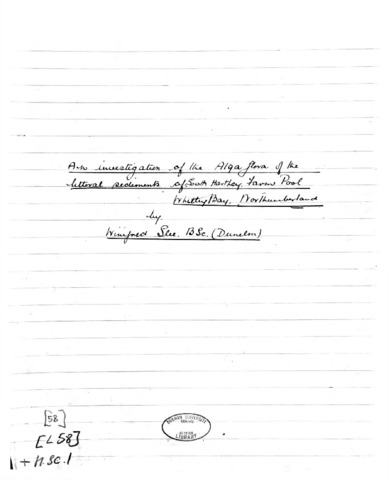 An investigation of the Alga flora of the
littoral sediments of South Hartley Farm Pool
Whitley Bay. Northumberland
by
Winifred Slee. BSc. (Dunelm)
[58]
[L58]
+ M.Sc.1
DURHAM UNIVERSITY
LIBRARY